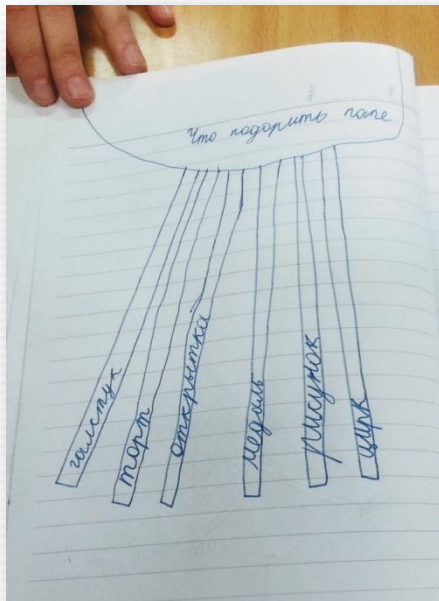 Что подарить папе
галстук
торт
открытка
медаль
рисунок
цирк